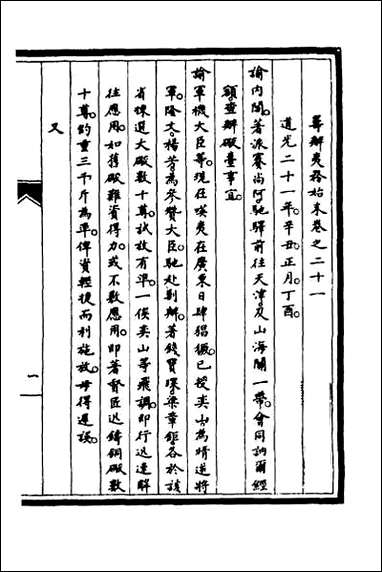 籌辦夷務始末卷之二十一
道光二十一年。辛丑正月。丁酉。
諭內閣。著派賽尚阿。馳驛前往天津。及山海關一帶。會同訥爾經
額。查辦礮臺事宜。
諭軍機大臣等。現在𠸄夷在廣東日肆猖獗。已授奕山為靖逆將
軍。隆文。楊芳。為參贊大臣。馳赴剿辦。著錢寶琛。梁章鉅。各於該
省揀選大礮數十尊。試放有準。一俟奕山等飛調。即行迅速解
往應用。如舊礮難資得力。或不敷應用。即著督匠迅鑄銅礮數
十尊。約重三千斤為準。俾資輕捷而利施放。毋得遲誤。
又
一